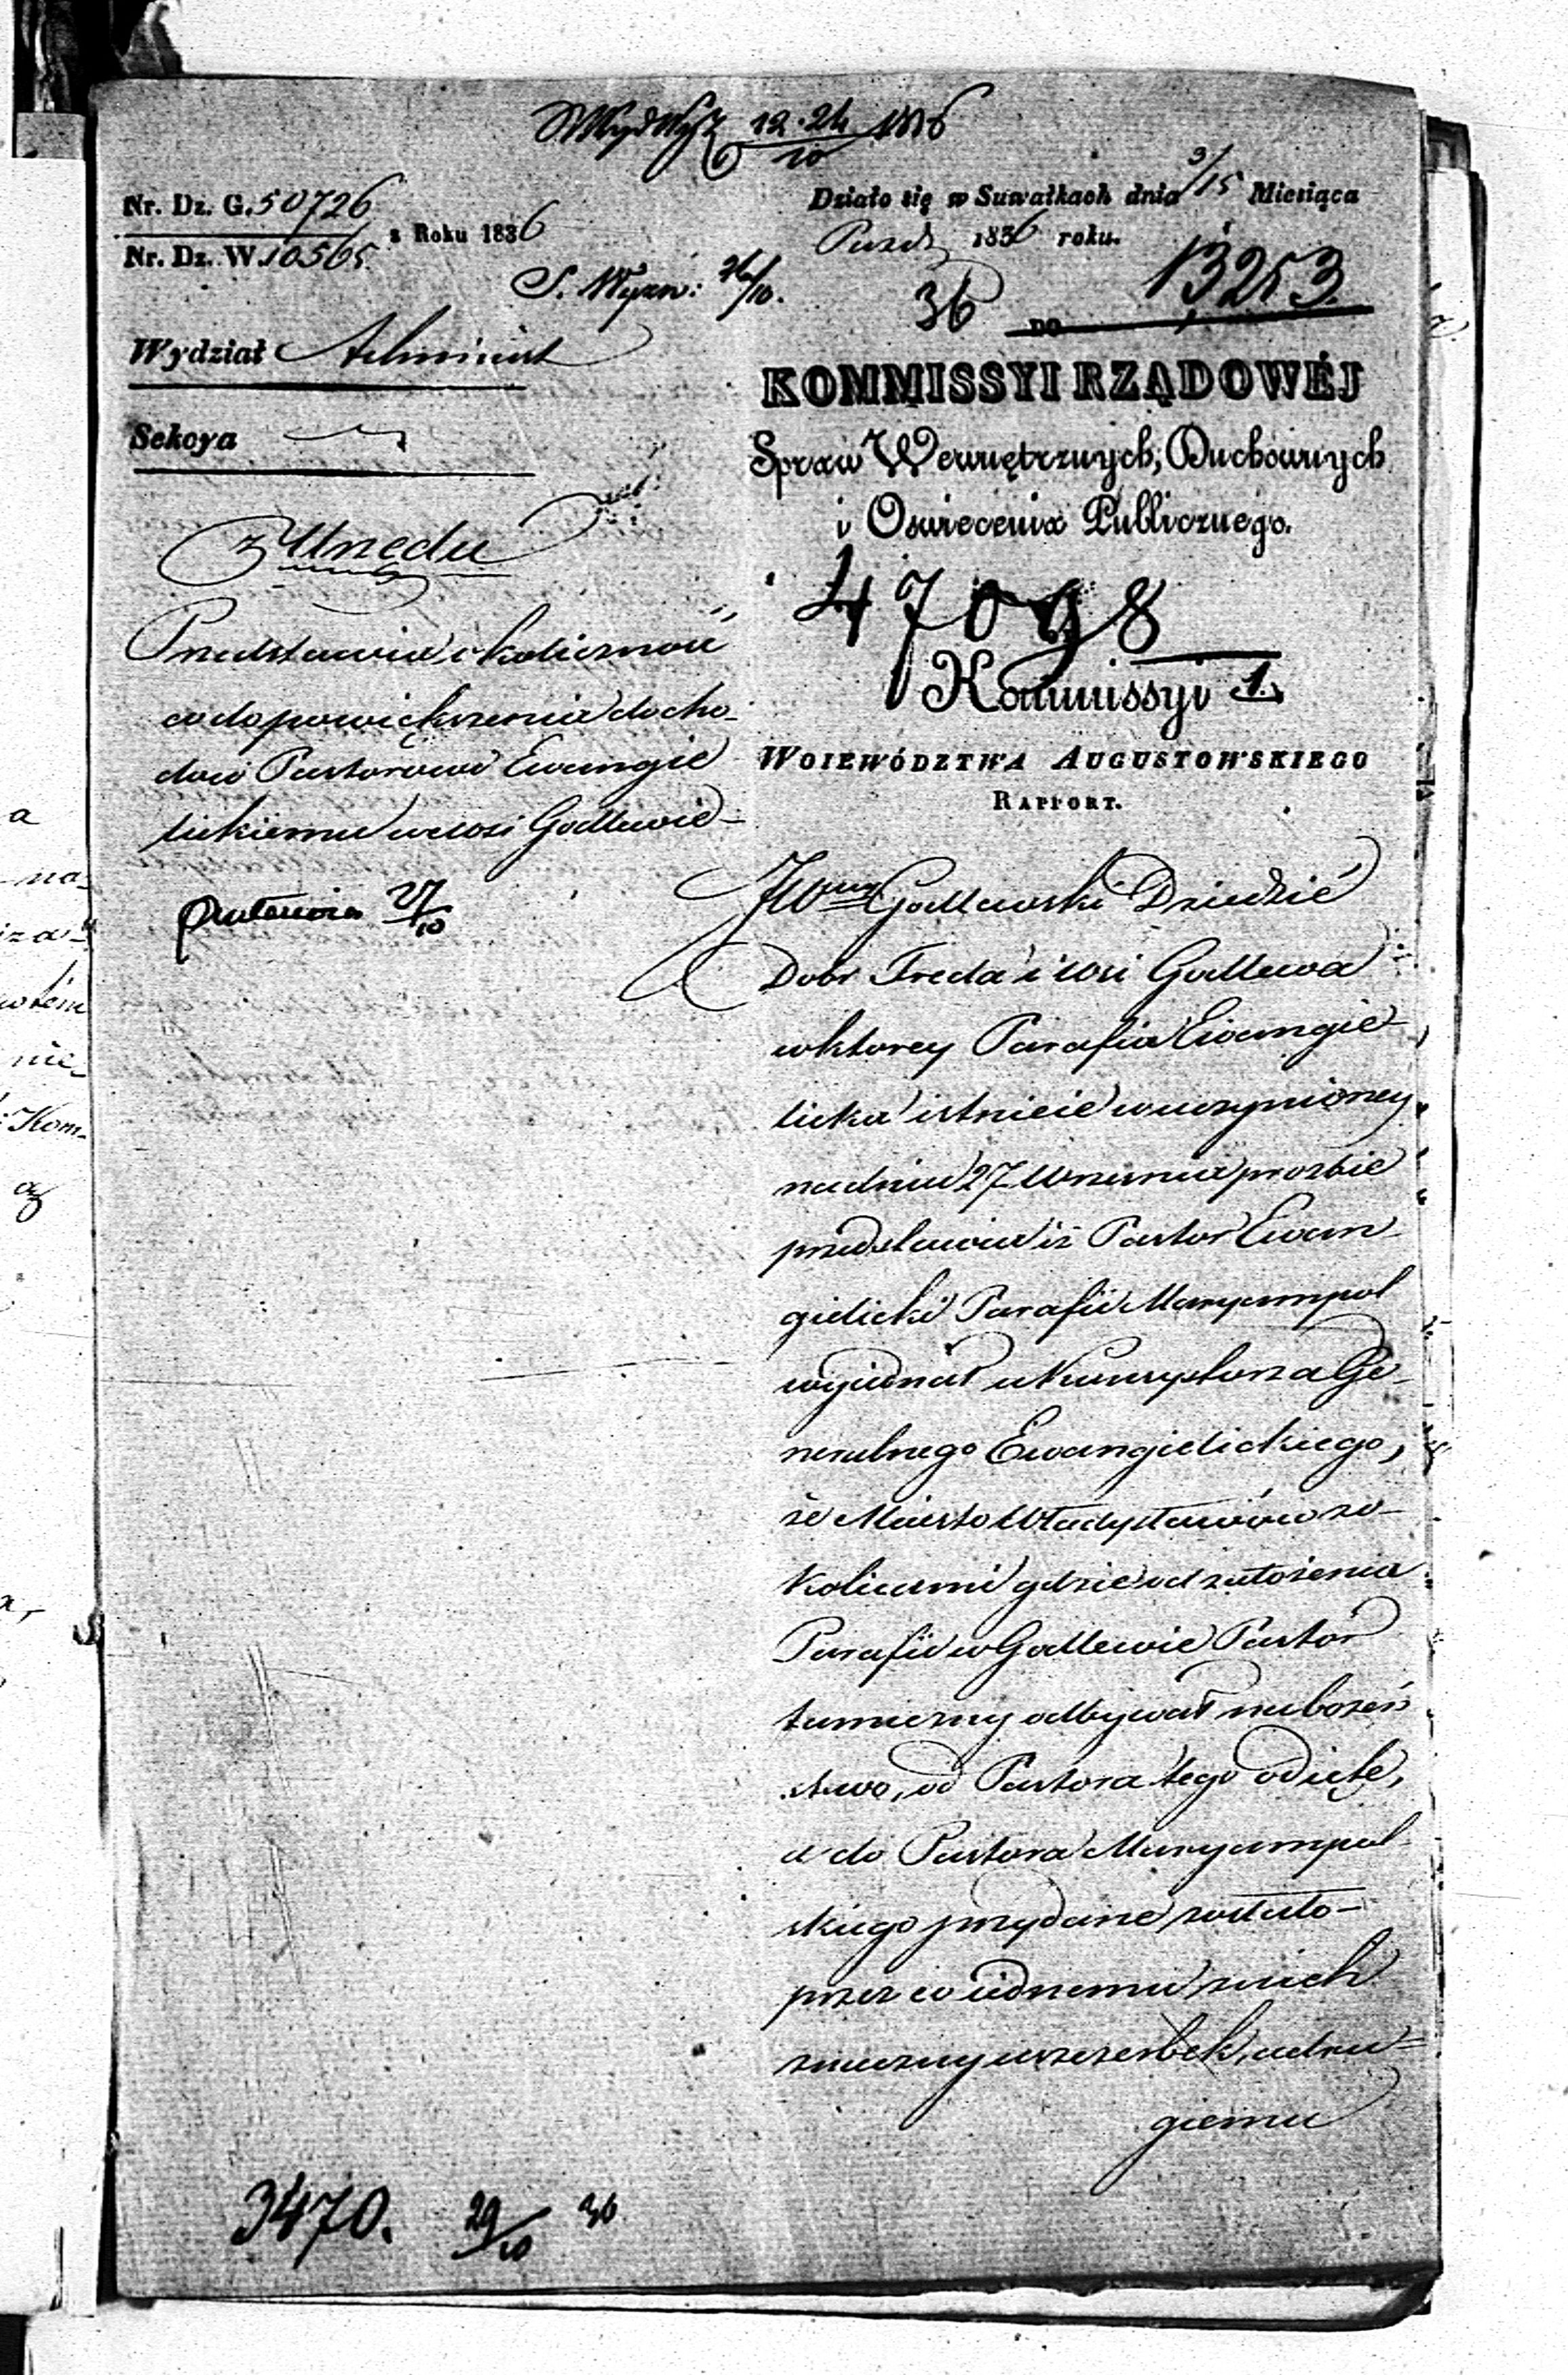 12.24/10 1836
Nr. Dz. G. 50726
Nr. Dz. W. 10565 z Roku 1836
Działo się w Suwałkach dnia 3/15 Miesiąca
Paźdz 1836 roku.
S. Wyzn: 26/10.
36
13253.
DO
Wydział Administ
Sekcya
KOMMISSYI RZĄDOWÉJ
Spraw Wewnętrznych, Duchownych
i Oświecenia Publicznego.
47098
Kommissyi 1.
WOIEWÓDZTWA AUGUSTOWSKIEGO
RAPPORT.
z Urzędu
Przedstawia okoliczność
co do powiększenia docho-
dów Pastorowi Ewangie
lickiemu we wsi Godlewie
27/10
JWny Godlewski Dziedzić
Dobr Freda i wsi Godlewa
w ktorey Parafia Ewangie
licka istnieie w uczynioney
na dniu 27 Września prozbie
przedstawia iż Pastor Ewan
gielicki Parafii Maryampol
wyiednał u Konsystorza Ge-
neralnego Ewangielickiego,
że Miasto Władysławów z o-
kolicami gdzie od założenia
Parafii w Godlewie Pastor
tameczny odbywał nabożeń
stwo, od Pastora tego odięte,
a do Pastora Maryampol-
skiego przydane zostało-
przez co iednemu z nich
znaczny uszczerbek, a dru-
giemu
3470. 29/10 36